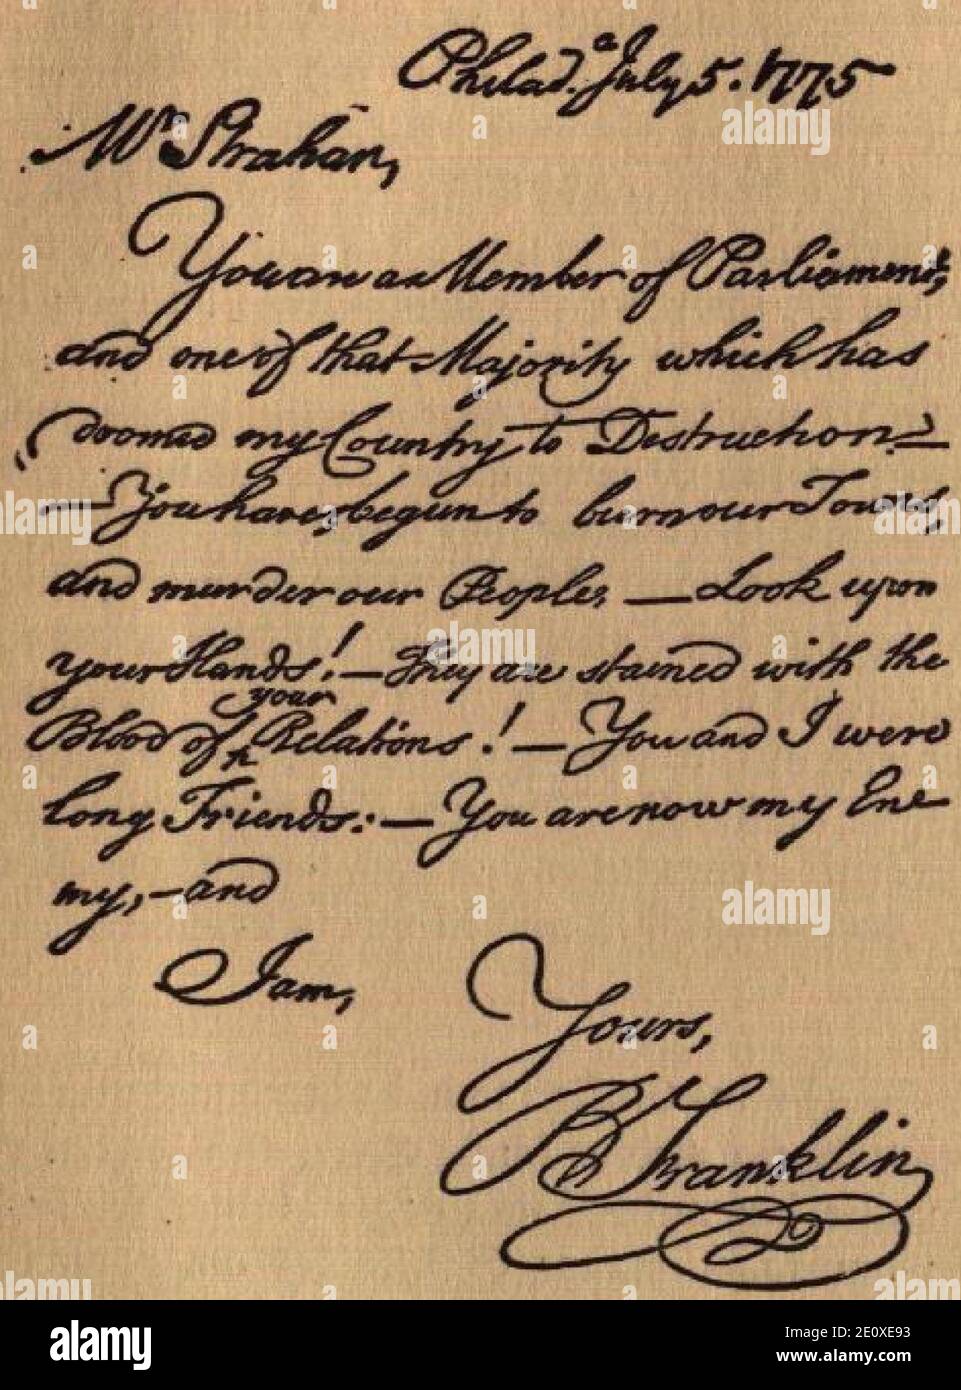 Philad.ª July 5. 1775
Mr Strahan,
You are a Member of Parliament,
and one of that Majority which has
doomed my Country to Destruction.—
— You have begun to burn our Towns,
and murder our People. — Look upon
your Hands! — They are stained with the
your
Blood of ^ Relations! — You and I were
long Friends: — You are now my Ene
my, — and
I am,
Yours,
B Franklin
alamy
Image ID: 2E0XE93
www.alamy.com